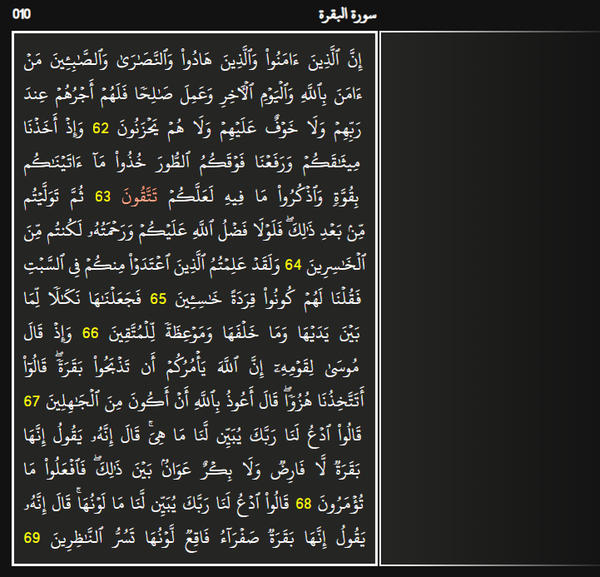 سورة البقرة
010
إِنَّ ٱلَّذِينَ ءَامَنُوا۟ وَٱلَّذِينَ هَادُوا۟ وَٱلنَّصَـٰرَىٰ وَٱلصَّـٰبِـِٔينَ مَنْ
ءَامَنَ بِٱللَّهِ وَٱلْيَوْمِ ٱلْـَٔاخِرِ وَعَمِلَ صَـٰلِحًا فَلَهُمْ أَجْرُهُمْ عِندَ
رَبِّهِمْ وَلَا خَوْفٌ عَلَيْهِمْ وَلَا هُمْ يَحْزَنُونَ 62 وَإِذْ أَخَذْنَا
مِيثَـٰقَكُمْ وَرَفَعْنَا فَوْقَكُمُ ٱلطُّورَ خُذُوا۟ مَآ ءَاتَيْنَـٰكُم
بِقُوَّةٍ وَٱذْكُرُوا۟ مَا فِيهِ لَعَلَّكُمْ تَتَّقُونَ 63 ثُمَّ تَوَلَّيْتُم
مِّنۢ بَعْدِ ذَٰلِكَ ۖ فَلَوْلَا فَضْلُ ٱللَّهِ عَلَيْكُمْ وَرَحْمَتُهُۥ لَكُنتُم مِّنَ
ٱلْخَـٰسِرِينَ 64 وَلَقَدْ عَلِمْتُمُ ٱلَّذِينَ ٱعْتَدَوْا۟ مِنكُمْ فِى ٱلسَّبْتِ
فَقُلْنَا لَهُمْ كُونُوا۟ قِرَدَةً خَـٰسِـِٔينَ 65 فَجَعَلْنَـٰهَا نَكَـٰلًا لِّمَا
بَيْنَ يَدَيْهَا وَمَا خَلْفَهَا وَمَوْعِظَةً لِّلْمُتَّقِينَ 66 وَإِذْ قَالَ
مُوسَىٰ لِقَوْمِهِۦٓ إِنَّ ٱللَّهَ يَأْمُرُكُمْ أَن تَذْبَحُوا۟ بَقَرَةً ۖ قَالُوٓا۟
أَتَتَّخِذُنَا هُزُوًا ۖ قَالَ أَعُوذُ بِٱللَّهِ أَنْ أَكُونَ مِنَ ٱلْجَـٰهِلِينَ 67
قَالُوا۟ ٱدْعُ لَنَا رَبَّكَ يُبَيِّن لَّنَا مَا هِىَ ۚ قَالَ إِنَّهُۥ يَقُولُ إِنَّهَا
بَقَرَةٌ لَّا فَارِضٌ وَلَا بِكْرٌ عَوَانٌۢ بَيْنَ ذَٰلِكَ ۖ فَٱفْعَلُوا۟ مَا
تُؤْمَرُونَ 68 قَالُوا۟ ٱدْعُ لَنَا رَبَّكَ يُبَيِّن لَّنَا مَا لَوْنُهَا ۚ قَالَ إِنَّهُۥ
يَقُولُ إِنَّهَا بَقَرَةٌ صَفْرَآءُ فَاقِعٌ لَّوْنُهَا تَسُرُّ ٱلنَّـٰظِرِينَ 69